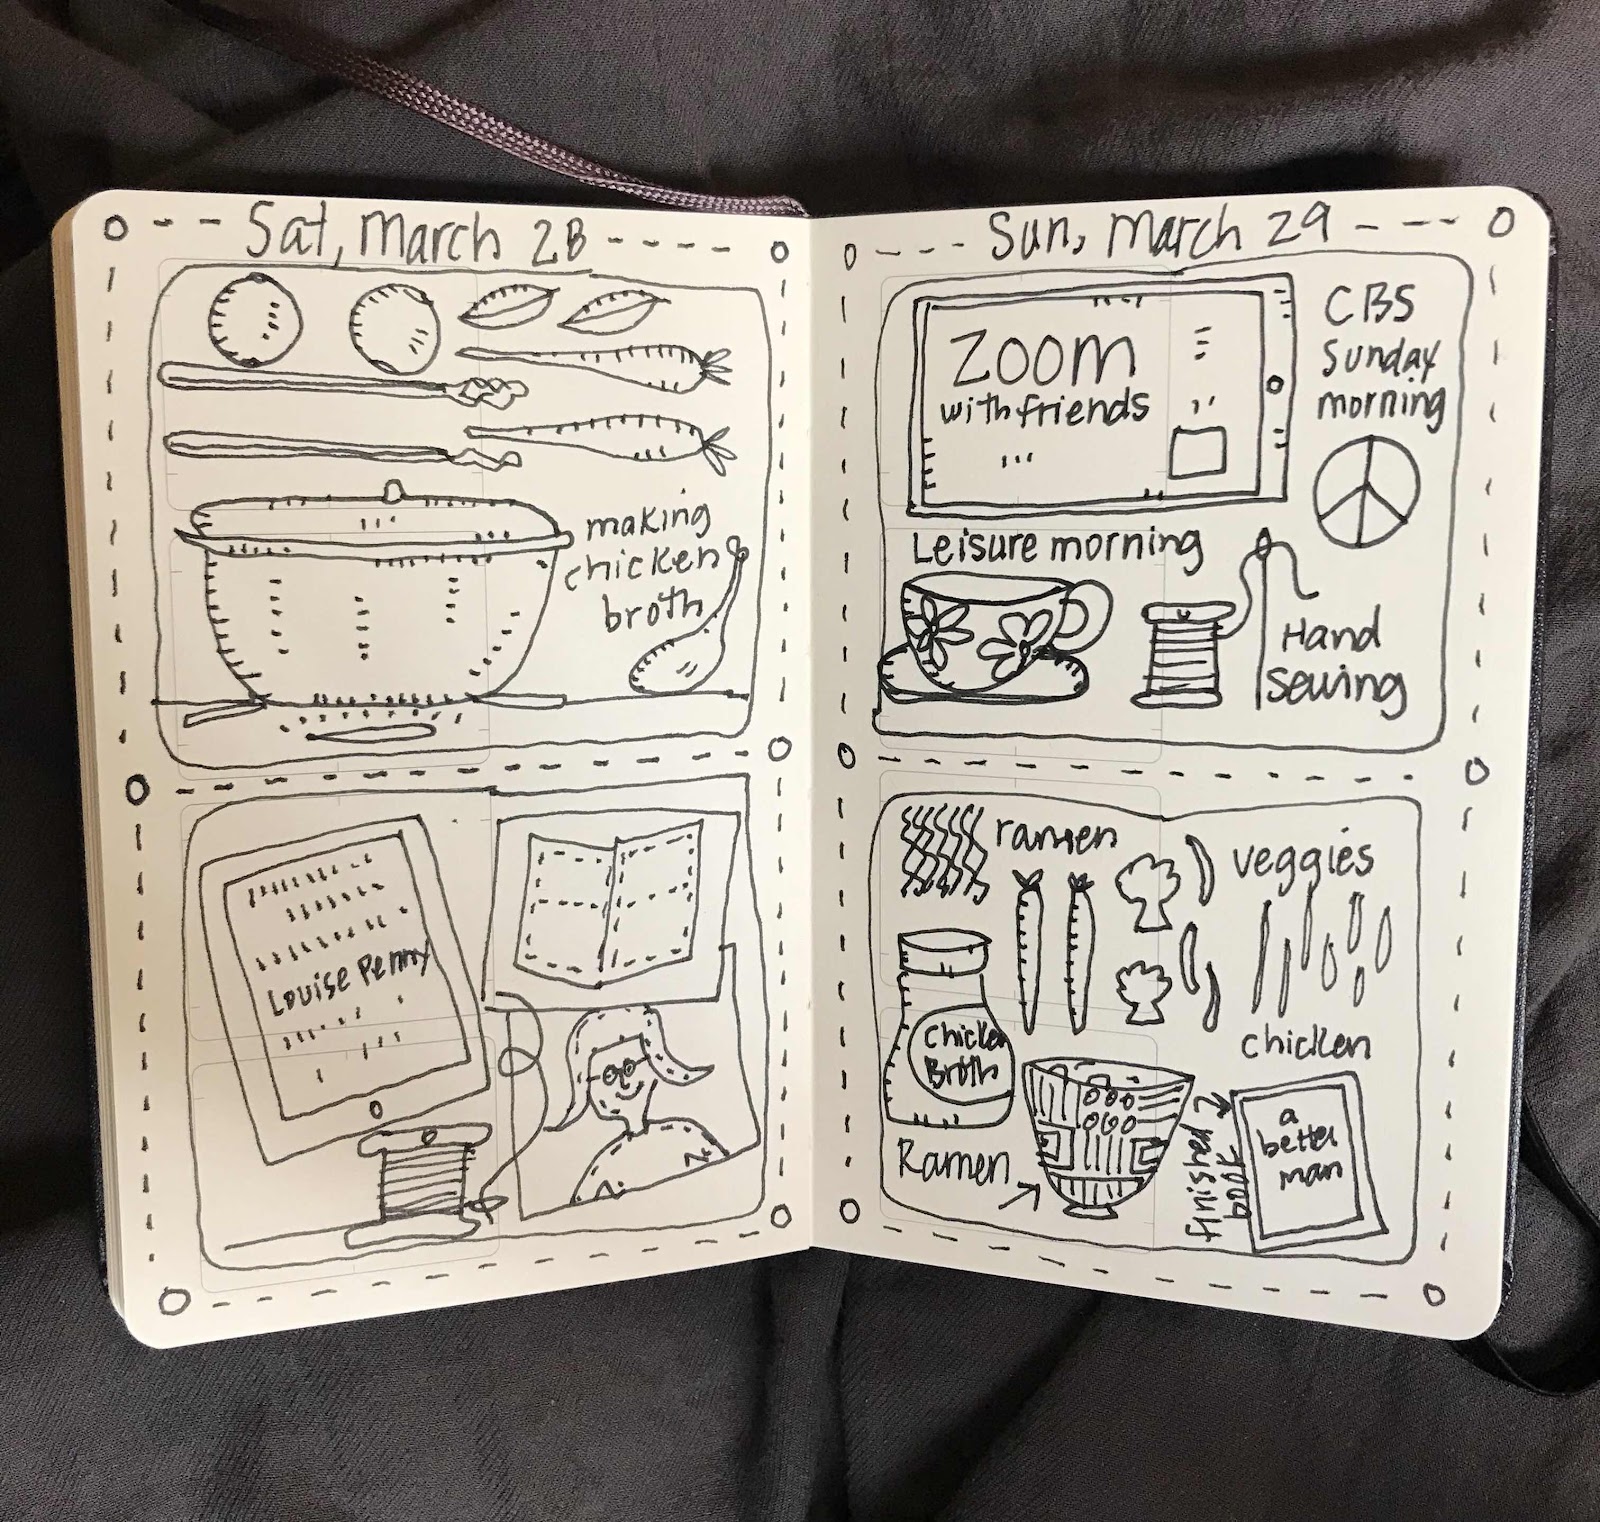 Sat, March 28
making
chicken
broth
Louise Penny
Sun, March 29
Zoom
with friends
CBS
Sunday
morning
Leisure morning
Hand
Sewing
ramen
veggies
Chicken
Broth
chicken
Ramen
finished
book
a
better
man